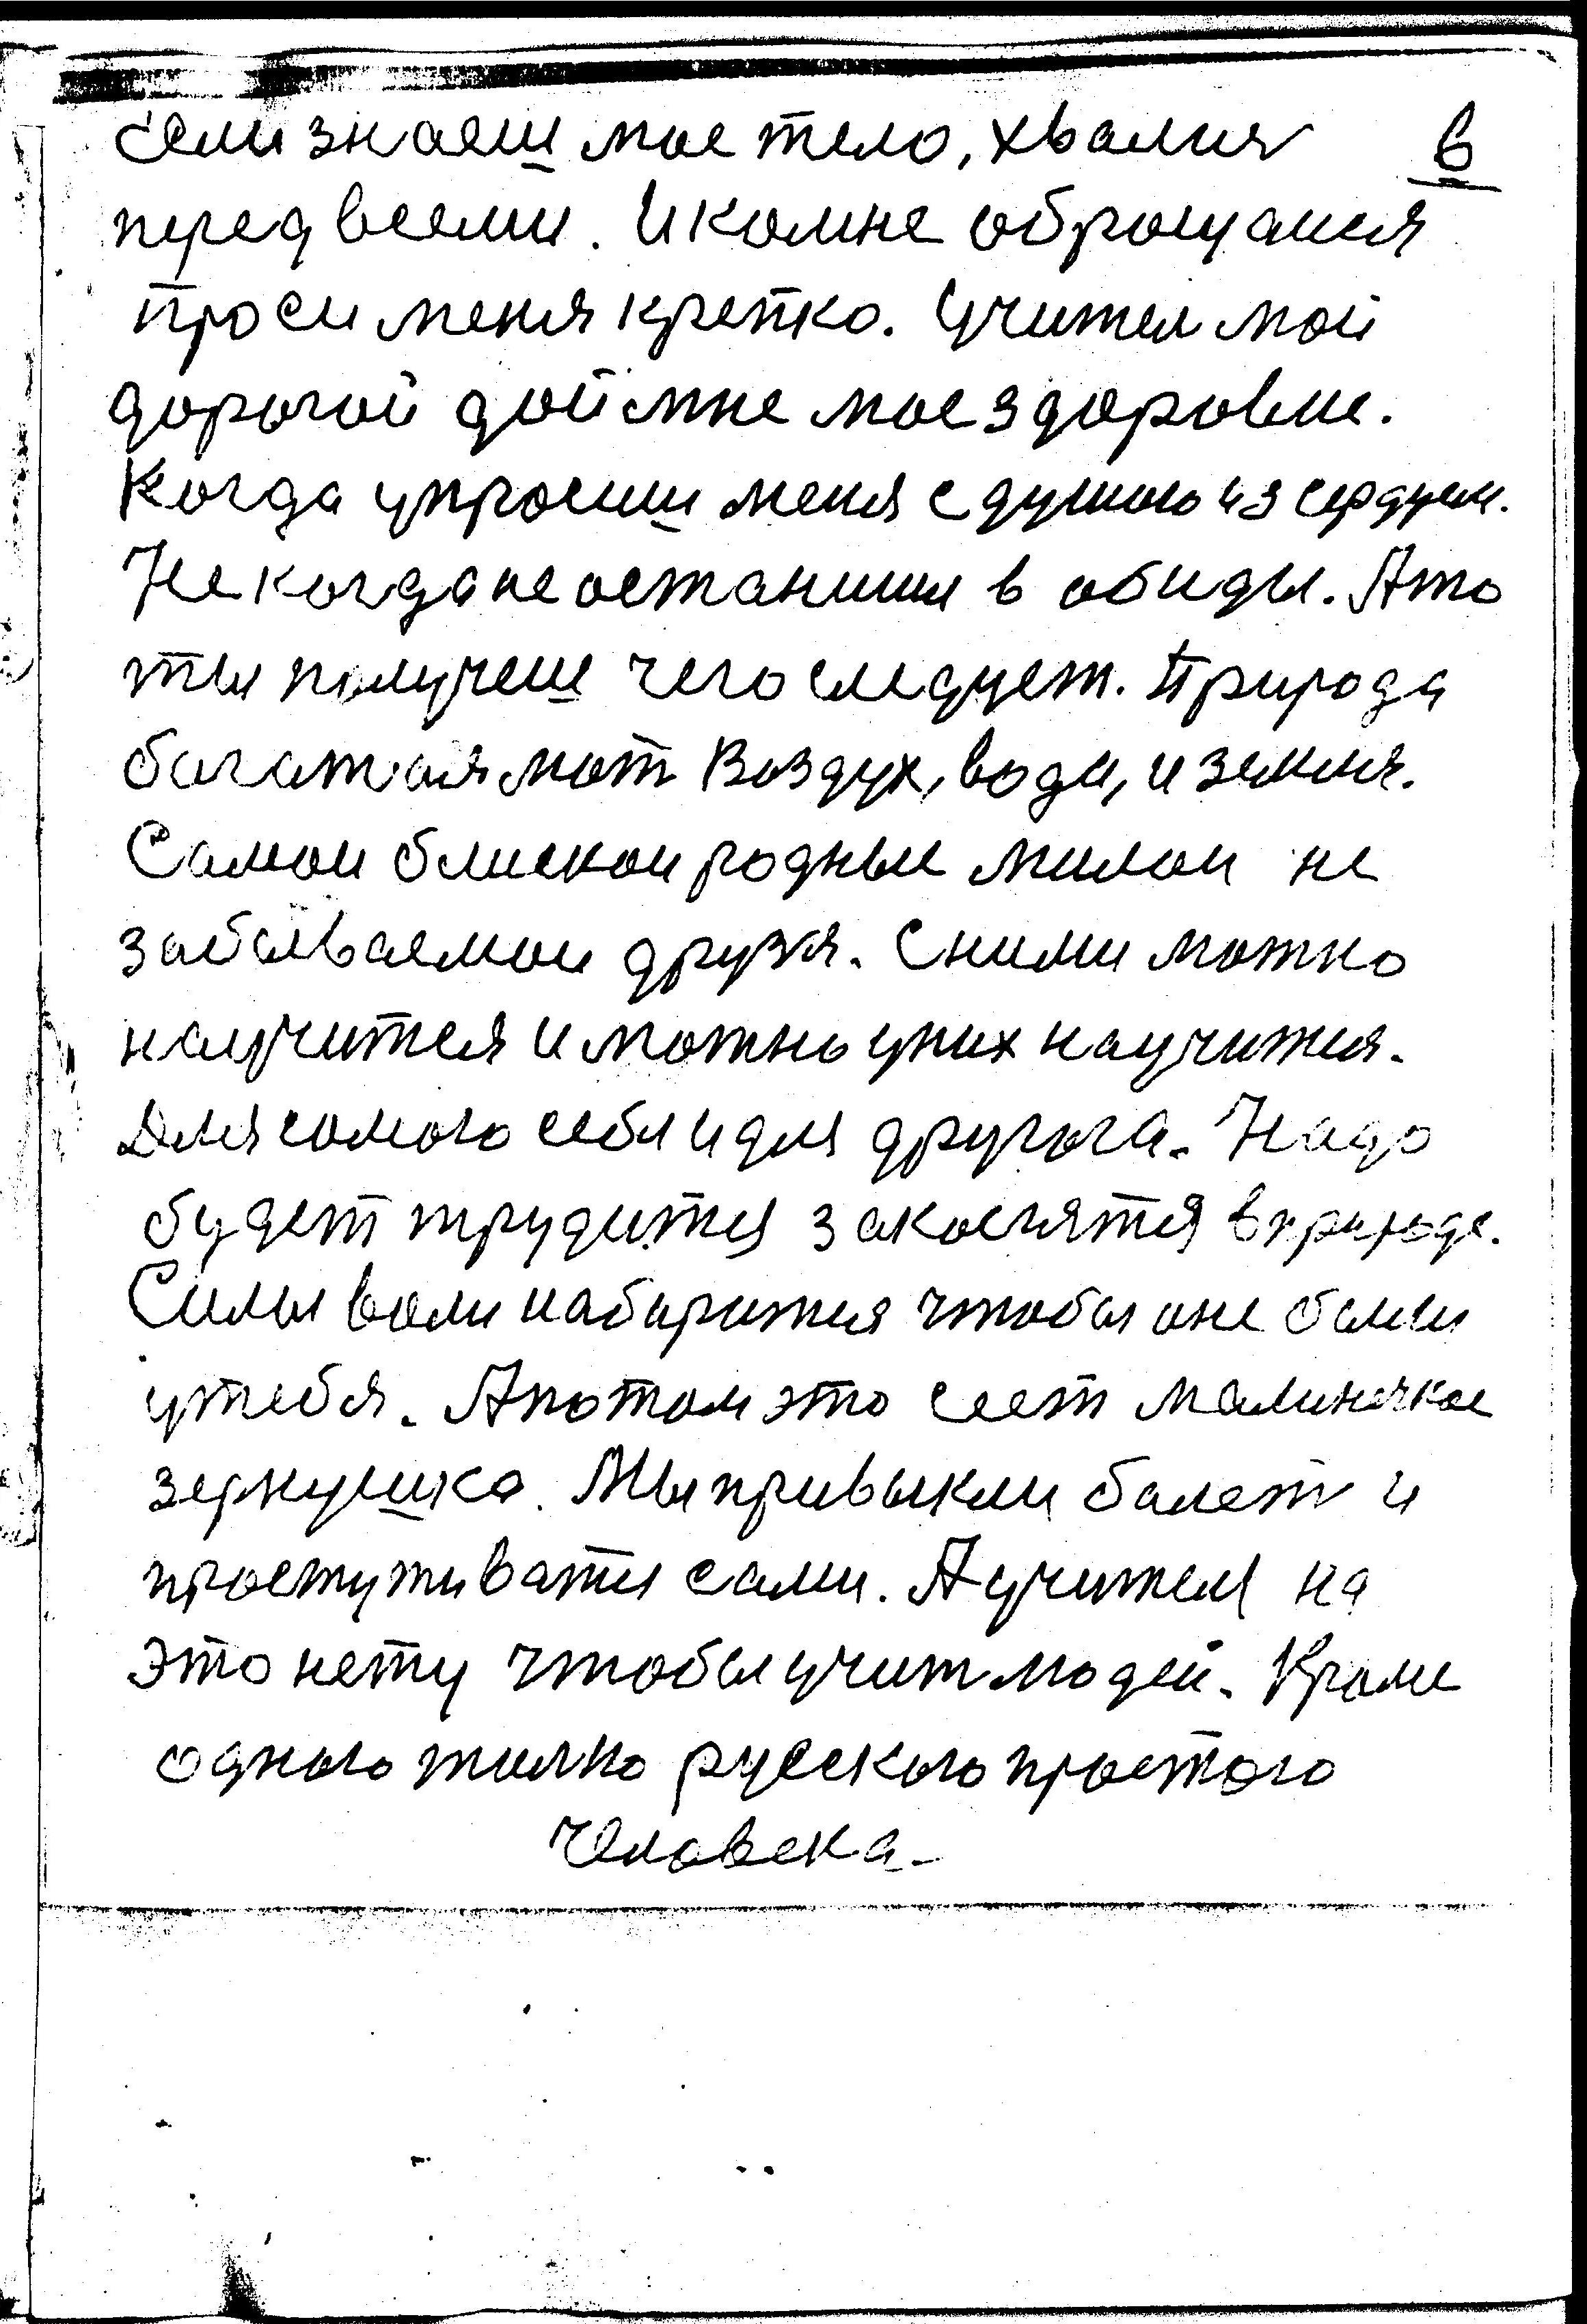 Если знаеш мое тело, хвалися 6
перед всеми. И комне обращаися
проси меня крепко. Учител мой
дорогой дой мне мое здоровие.
Когда упросиш меня с душою из сердцем.
Не когда не останишся в обиды. Ато
ты получеш чего следует. Природа
багатая мат Воздух, вода, и земля.
Самои блискои родные милои не
забываемои друзя. Сними можно
научится и можно уних научится.
Для самого себя и для другога. Надо
будет трудится закослятся в природе.
Силы воли набиратся чтобы оне были
утебя. Апотом это сест малиничкое
зернушко. Мы привыкли балет и
простуживатся сами. А учителя на
это нету чтобы учит людей. Кроме
одного толко русского простого
Человека.